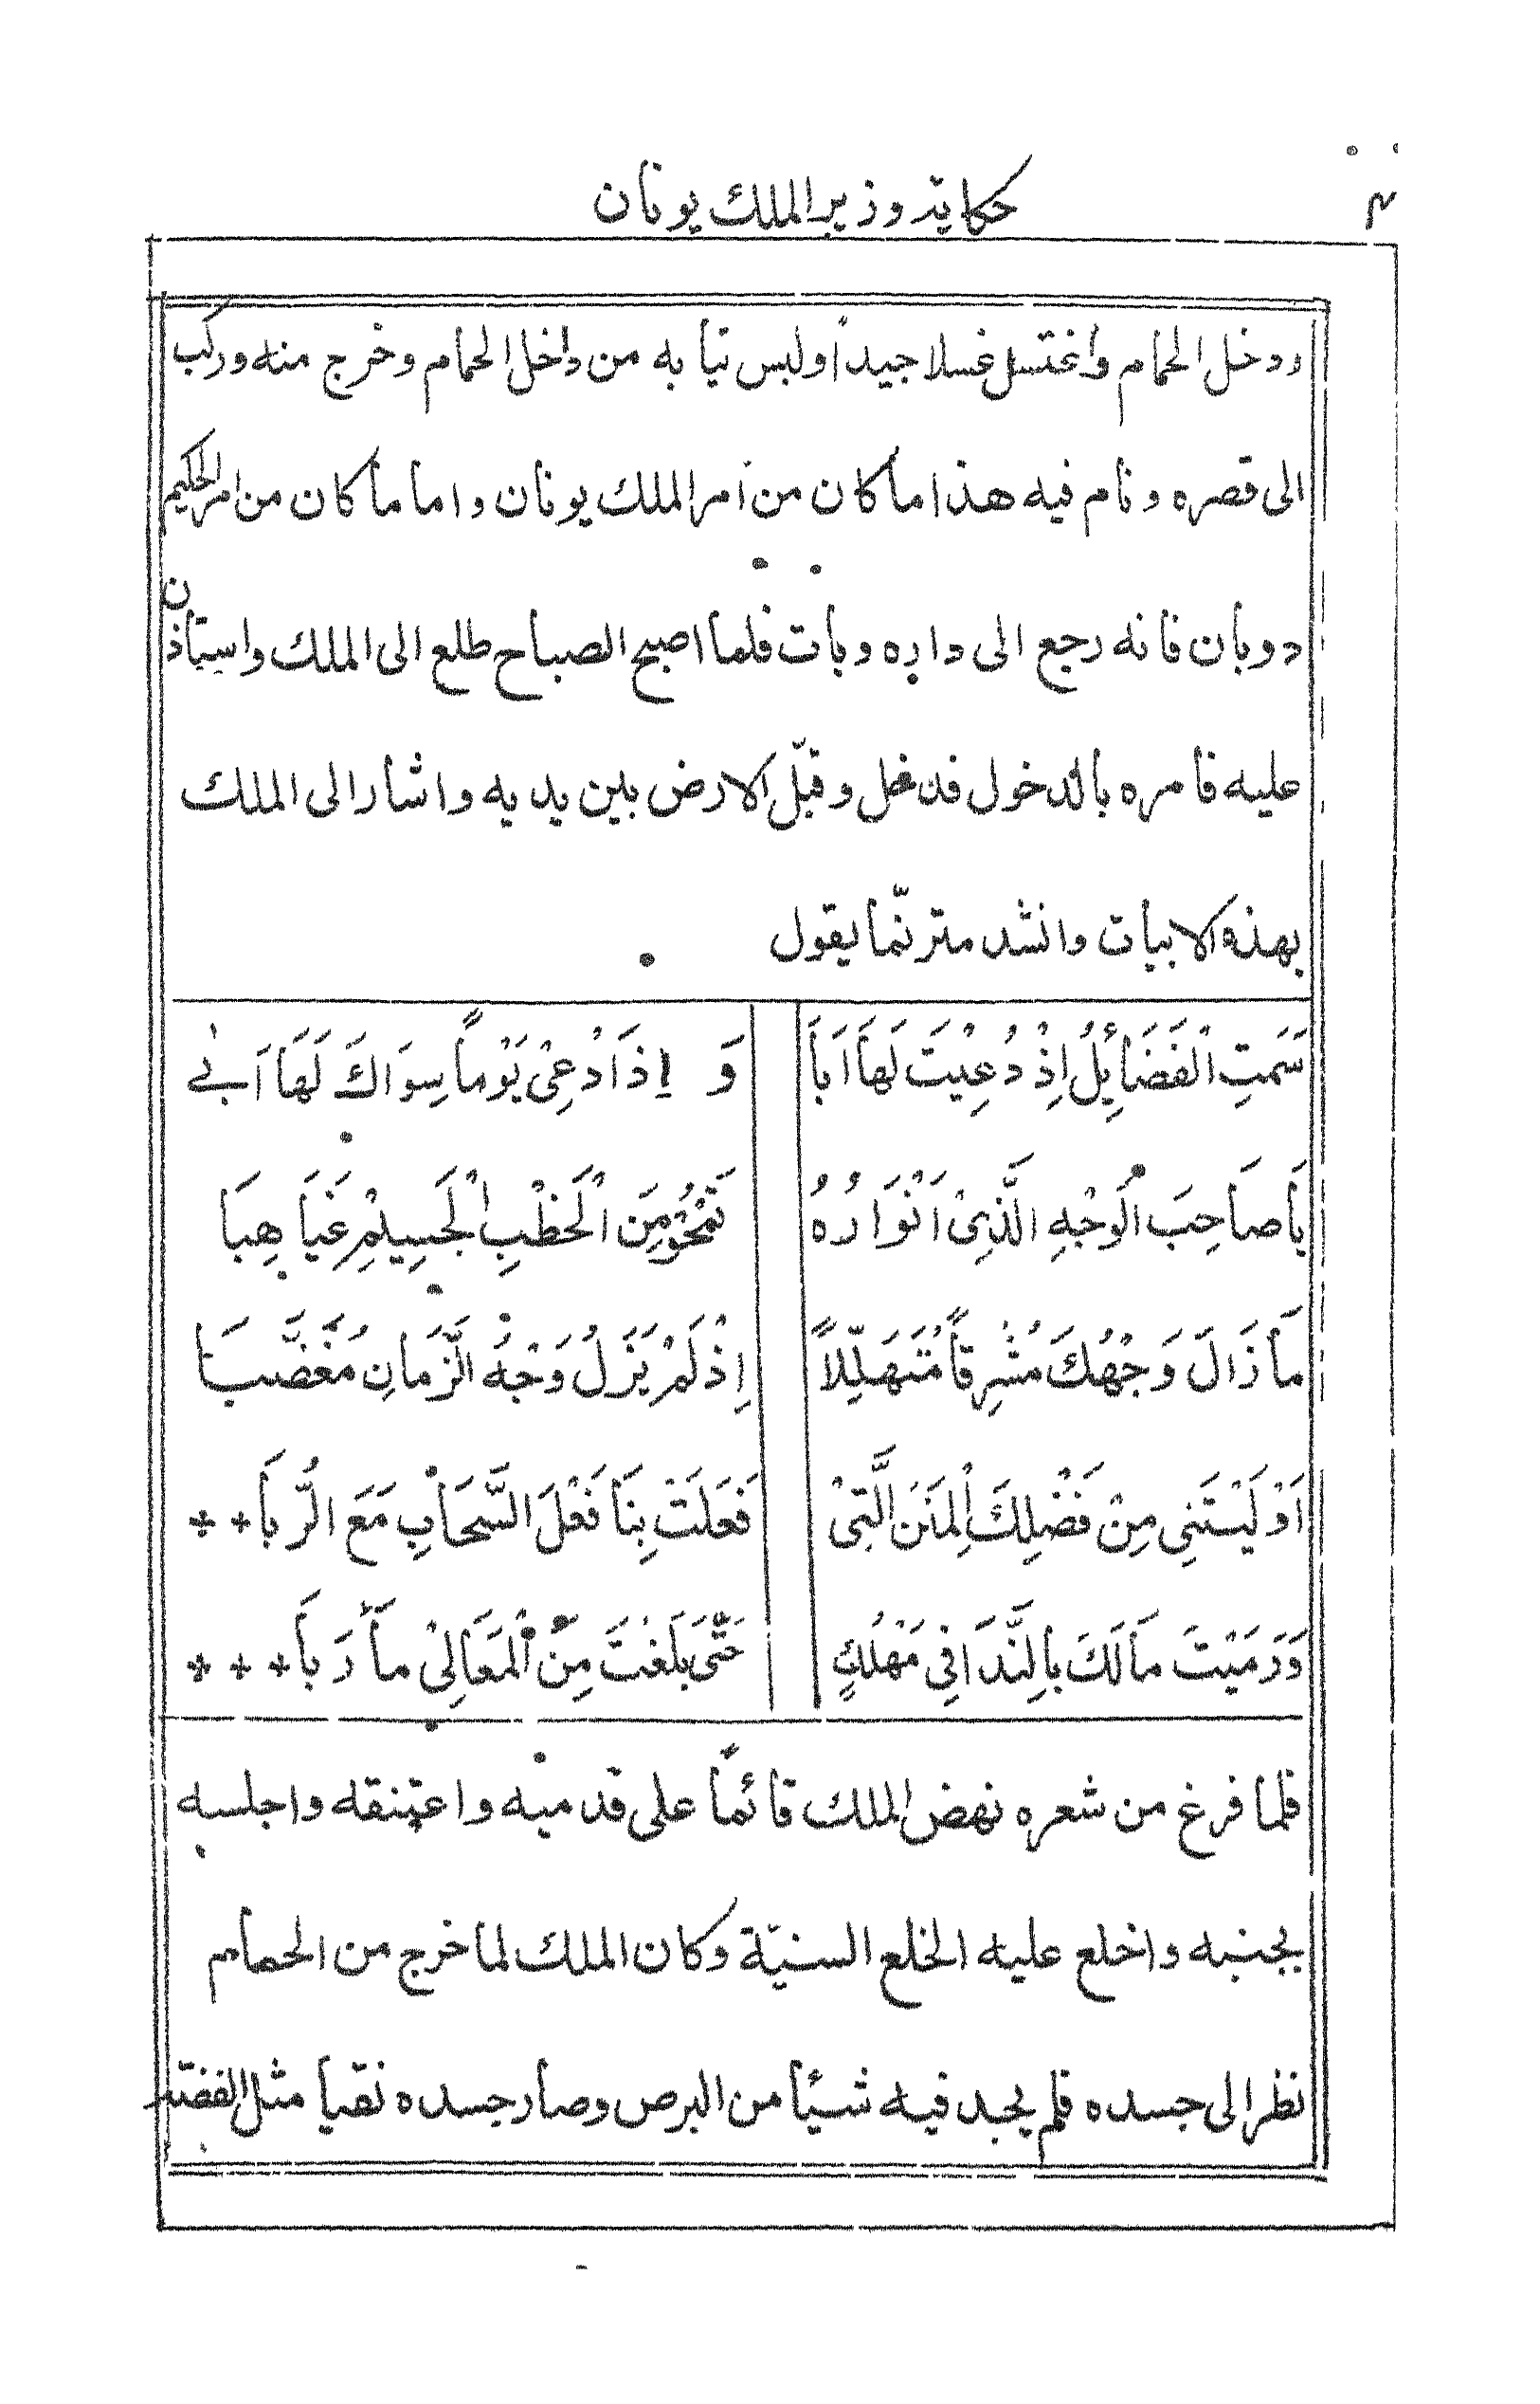 حكاية وزير الملك يونان
٣
ودخل الحمام واغتسل غسلا جيدا ولبس ثيابه من داخل الحمام وخرج منه وركب
الى قصره ونام فيه هذا ما كان من امر الملك يونان واما ما كان من امر الحكيم
دوبان فانه رجع الى داره وبات فلما اصبح الصباح طلع الى الملك واستاذن
عليه فامره بالدخول فدخل وقبّل الارض بين يديه واشار الى الملك
بهذه الابيات وانشد مترنّما يقول
سَمَتِ الْفَضَائِلُ اِذْ دُعِيْتَ لَهَا اَبَا وَ اِذَا دْعِىْ يَوْماً سِوَاكَ لَهَا اَبٰى
يَا صَاحِبَ الْوَجْهِ الَّذِىْ اَنْوَارُهُ تَمْحُوْ مِنَ الْخَطْبِ الْجَسِيْمِ غَيَاهِبَا
مَا زَالَ وَجْهُكَ مُشْرِقاً مُتَهَلِّلاً اِذْ لَمْ يَزَلْ وَجْهُ الَّزَمَانِ مُغَضَّبَا
اَوْلَيْتَنِى مِنْ فَضْلِكَ الْمِنَنَ الَّتِىْ فَعَلَتْ بِنَا فَعْلَ السَّحَابِ مَعَ الرُّبَا * *
وَرَمَيْتَ مَالَكَ بِالنَّدَا فِى مَهْلَكٍ حَتّٰى بَلَغْتَ مِنَ الْمَعَالِىْ مَآرَبَا * * *
فلما فرغ من شعره نهض الملك قائماً على قدميه واعتنقه واجلسه
بجنبه واخلع عليه الخلع السنيّة وكان الملك لما خرج من الحمام
نظر الى جسده فلم يجد فيه شيئا من البرص وصار جسده نقيا مثل الفضة